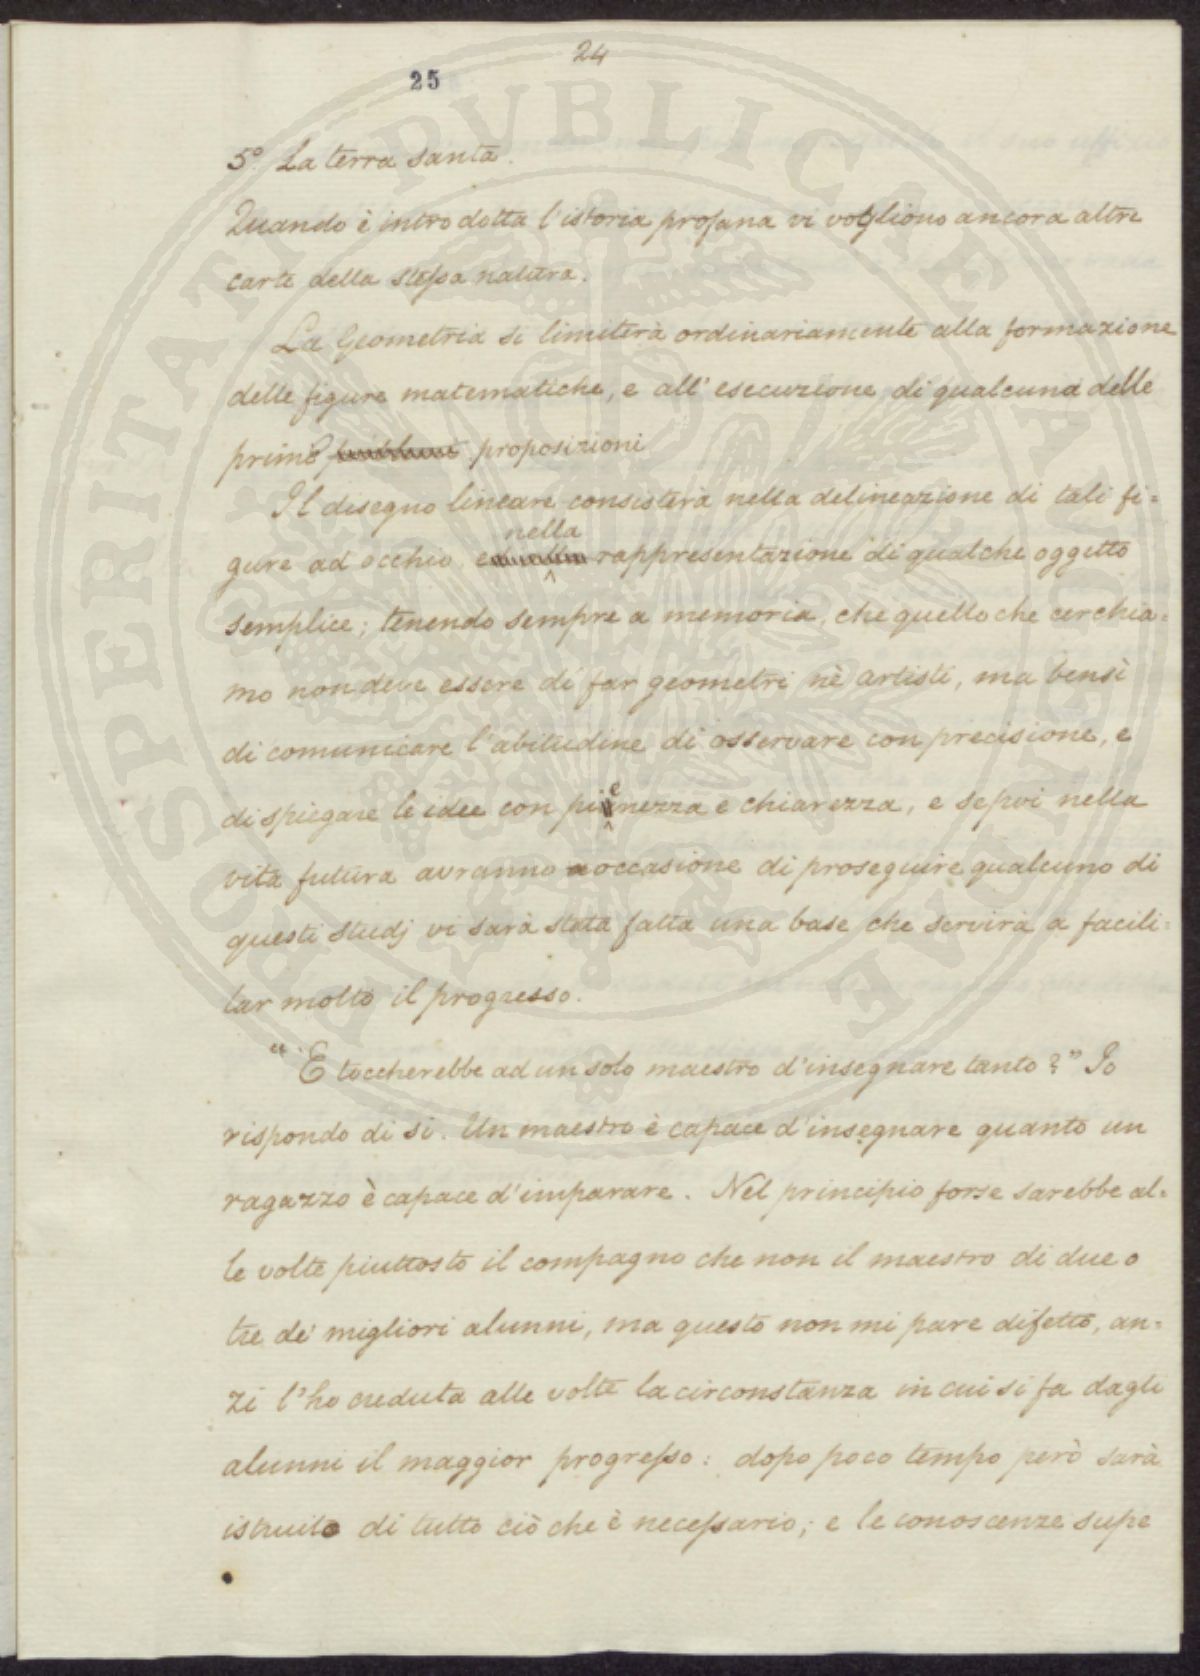 24
25
5º La terra santa.
Quando è introdotta l'istoria profana vi vogliono ancora altre
carte della stessa natura.
La Geometria si limiterà ordinariamente alla formazione
delle figure matematiche, e all' esecuzione di qualcuna delle
prime proposizioni
Il disegno lineare consisterà nella delineazione di tali fi=
nella
gure ad occhio e rappresentazione di qualche oggetto
semplice; tenendo sempre a memoria, che quello che cerchia=
mo non deve essere di far geometri nè artisti, ma bensì
di comunicare l'abitudine di osservare con precisione, e
di spiegare le idee con pienezza e chiarezza, e se poi nella
vita futura avranno occasione di proseguire qualcuno di
questi studj vi sarà stata fatta una base che servirà a facili=
tar molto il progresso.
"E toccherebbe ad un solo maestro d'insegnare tanto?" Io
rispondo di sì. Un maestro è capace d'insegnare quanto un
ragazzo è capace d'imparare. Nel principio forse sarebbe al=
le volte piuttosto il compagno che non il maestro di due o
tre de' migliori alunni, ma questo non mi pare difetto, an=
zi l'ho creduta alle volte la circonstanza in cui si fa dagli
alunni il maggior progresso: dopo poco tempo però sarà
istruito di tutto ciò che è necessario; e le conoscenze supe
PROSPERITATI PVBLICAE AVGENDAE